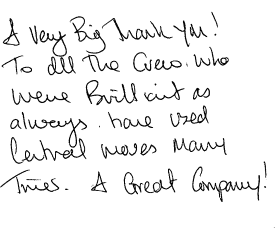 A Very Big Thank You!
To all The Crew. who
were Brilliant as
always. have used
Central moves Many
Times. A Great Company!